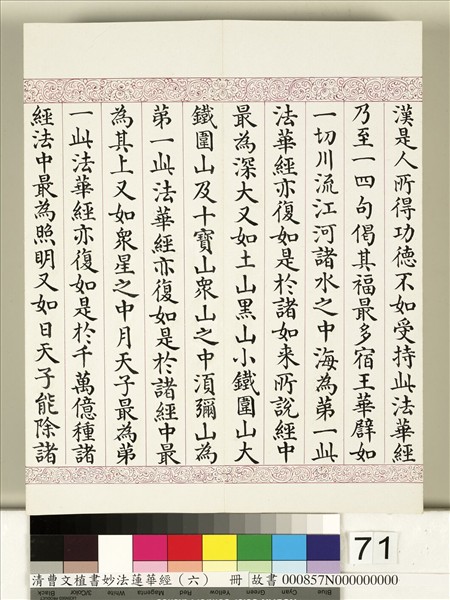 漢是人所得功德不如受持此法華經
乃至一四句偈其福最多宿王華譬如
一切川流江河諸水之中海為第一此
法華經亦復如是於諸如来所說經中
最為深大又如土山黑山小鐵圍山大
鐵圍山及十寶山眾山之中須彌山為
第一此法華經亦復如是於諸經中最
為其上又如眾星之中月天子最為第
一此法華經亦復如是於千萬億種諸
經法中最為照明又如日天子能除諸
71
Black
3/Color
White
Magenta
Red
Yellow
Green
Cyan
Blue
清曹文植書妙法蓮華經（六） 冊 故書 000857N000000000